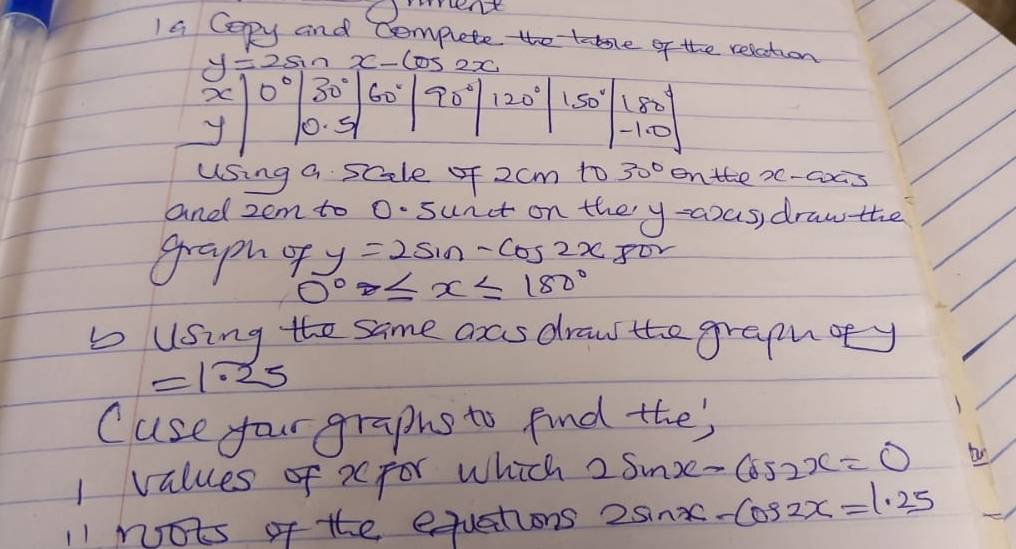 nment
1a Copy and Complete the table of the relation
y=2sin x-Cos 2x
x | 0° | 30° | 60° | 90° | 120° | 150° | 180°
y | | 0.5 | | | | | -1.0
using a scale of 2cm to 30° on the x-axis
and 2cm to 0.5 unit on the y-axis, draw the
graph of y = 2sin - Cos 2x for
0° ≤ x ≤ 180°
b Using the same axis draw the graph of y
= 1.25
C use your graphs to find the;
i values of x for which 2 Sinx - Cos2x = 0
ii roots of the equations 2sinx - Cos 2x = 1.25